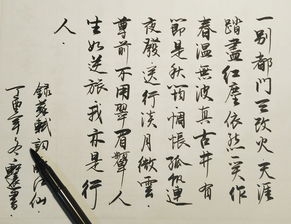 一別都門三改火天涯
踏盡紅塵依然一笑作
春温無波真古井有
節是秋筠惆悵孤帆連
夜發送行淡月微雲
尊前不用翠眉顰人
生如逆旅我亦是行
人
錄蘇軾詞臨江仙
丁酉年冬書